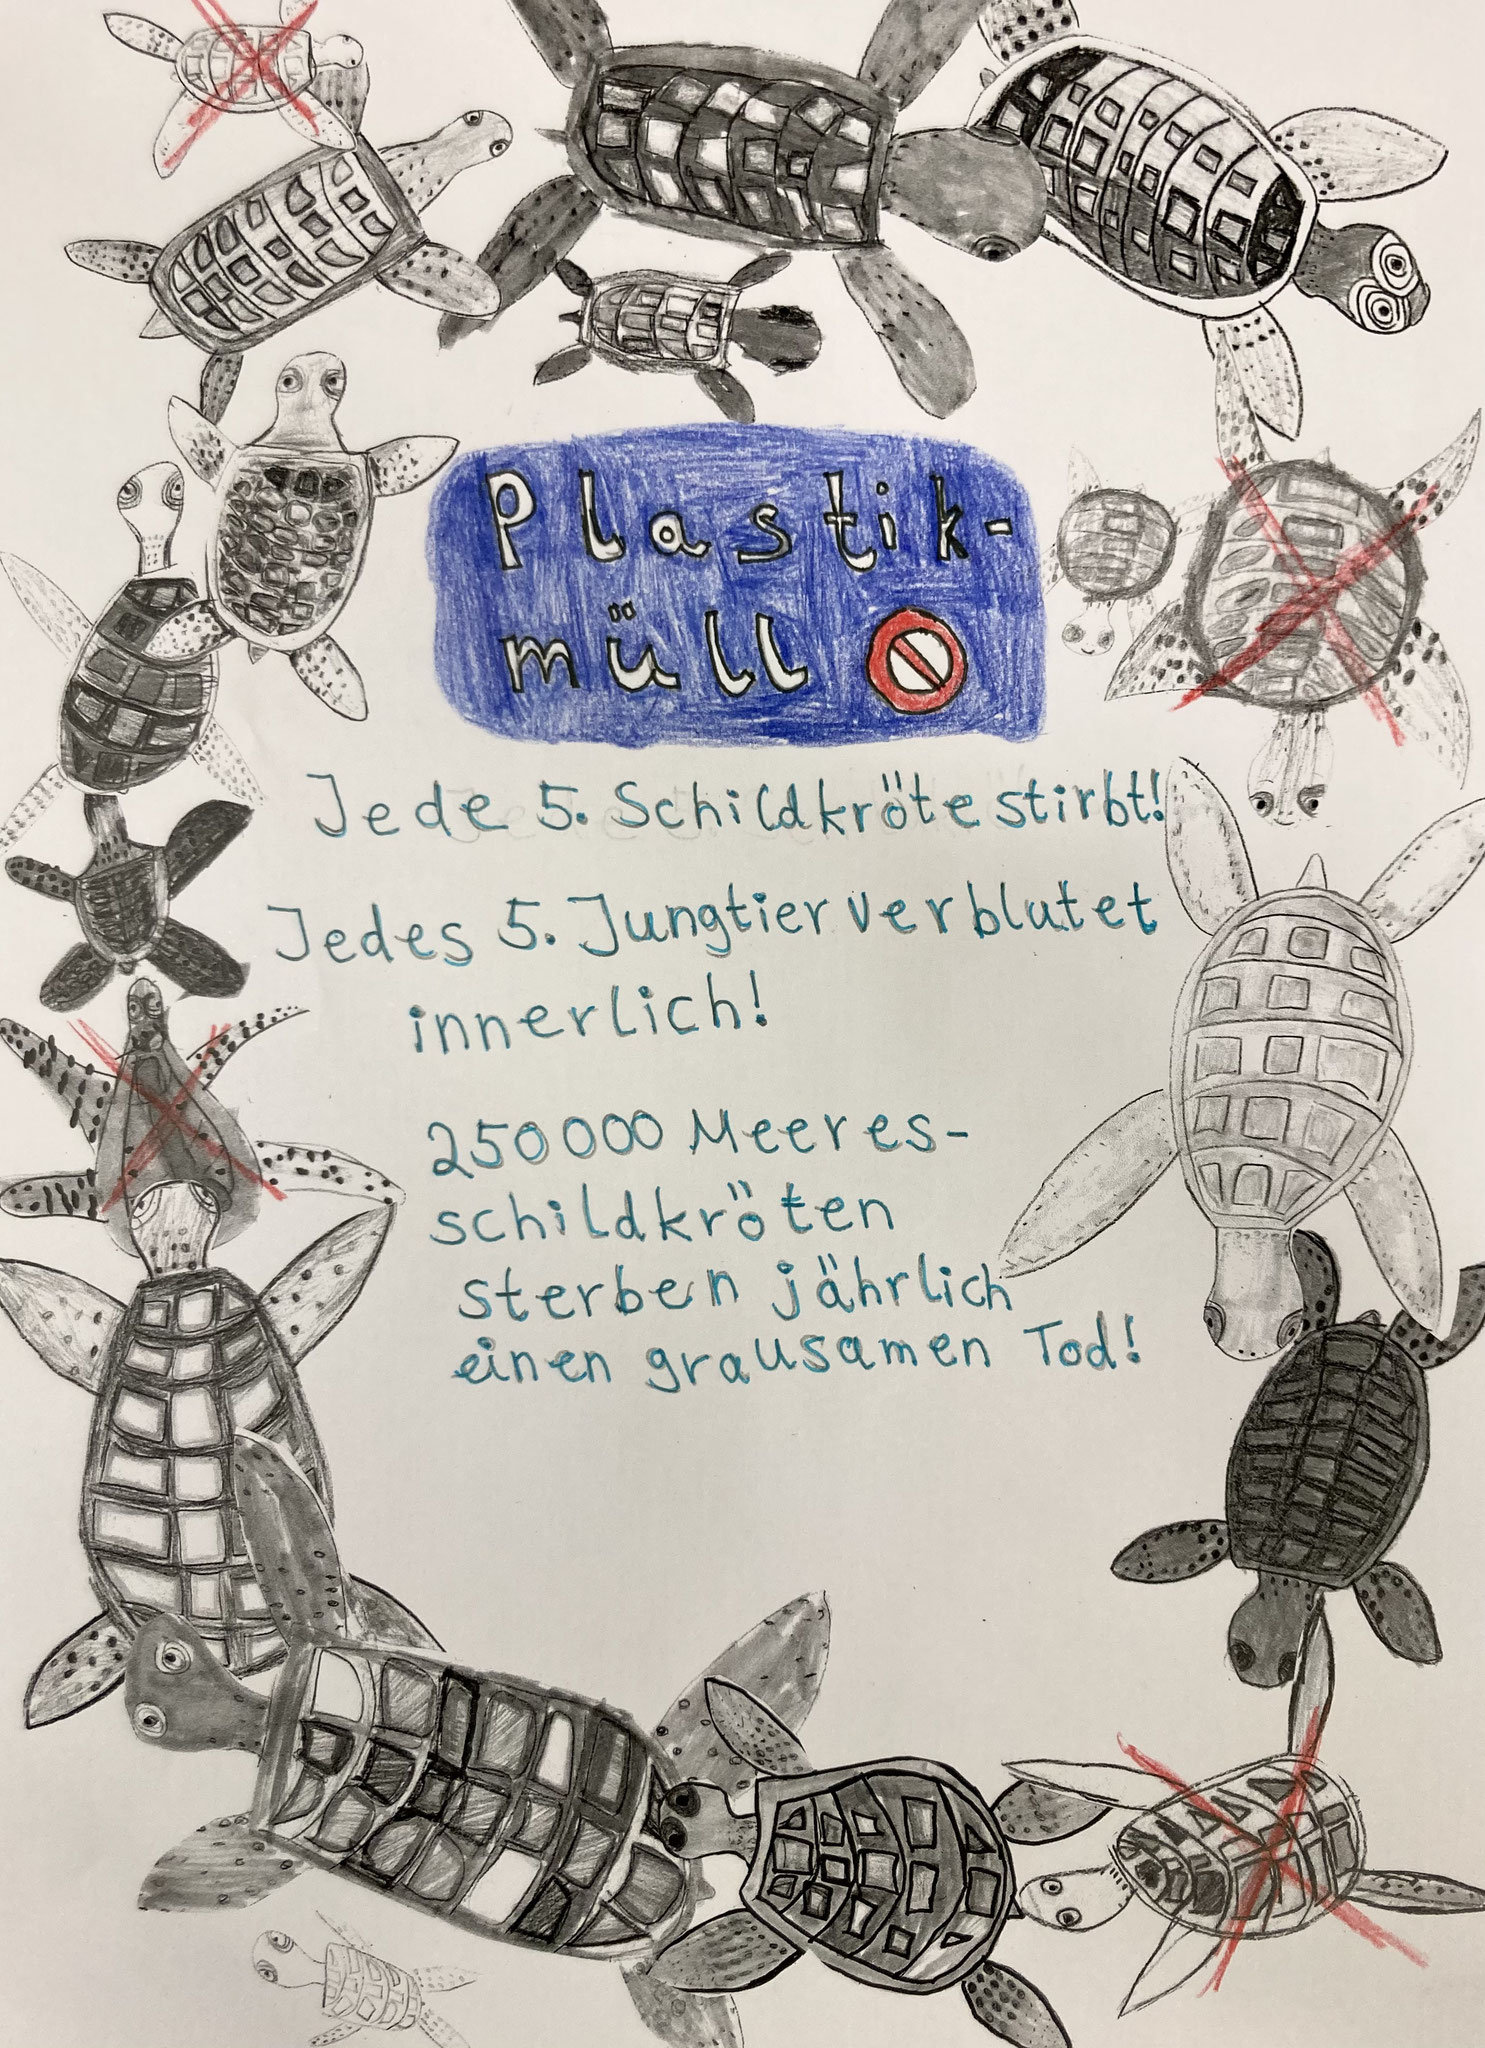 Plastik-
müll
Jede 5. Schildkröte stirbt!
Jedes 5. Jungtier verblutet
innerlich!
250000 Meeres-
schildkröten
sterben jährlich
einen grausamen Tod!